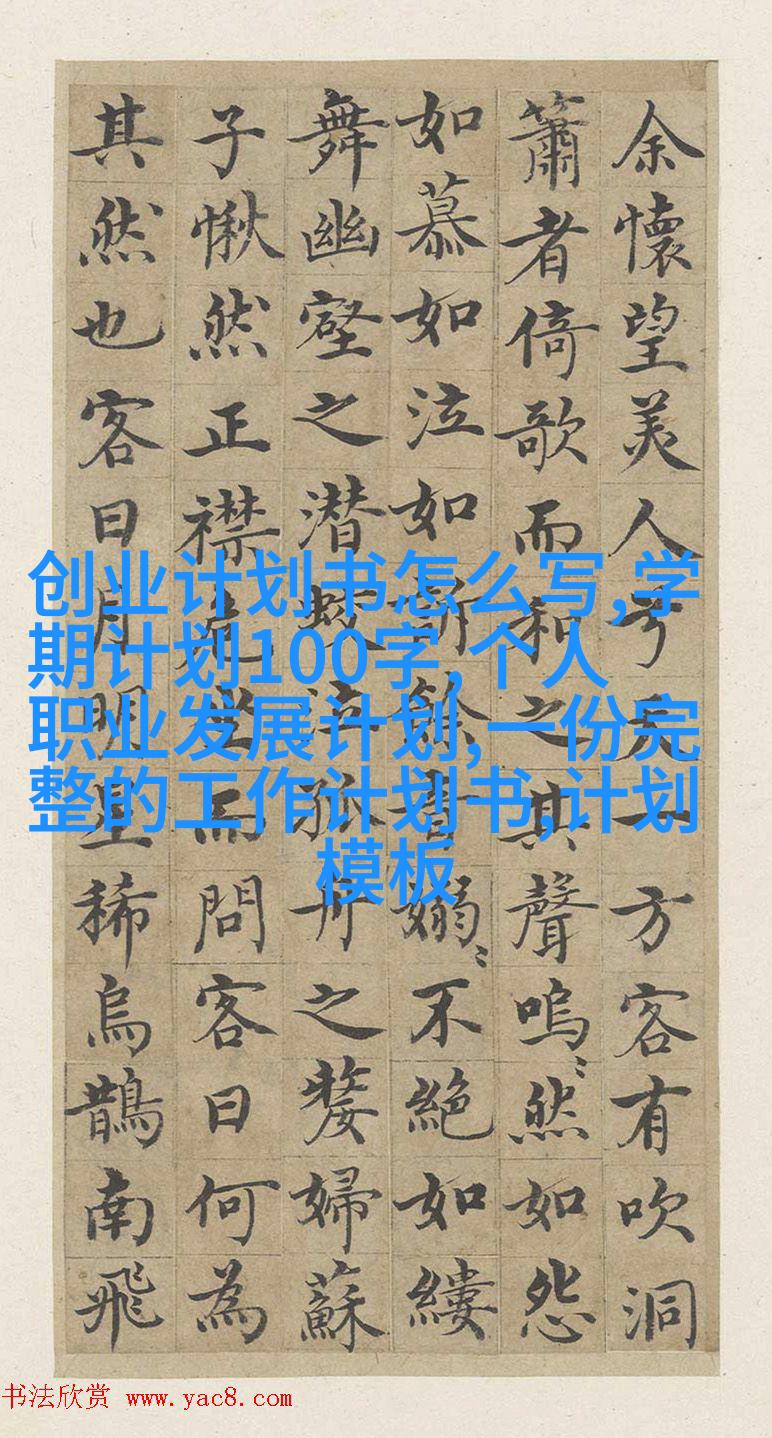 余懷望美人兮天一方客有吹洞
簫者倚歌而和之其聲嗚〻然如怨
如慕如泣如訴餘音嫋〻不絕如縷
舞幽壑之潜蛟泣孤舟之嫠婦蘇
子愀然正襟危坐而問客曰何為
其然也客曰月明星稀烏鵲南飛
创业计划书怎么写,学
期计划100字,个人
职业发展计划,一份完
整的工作计划书,计划
模板
书法欣赏 www.yac8.com